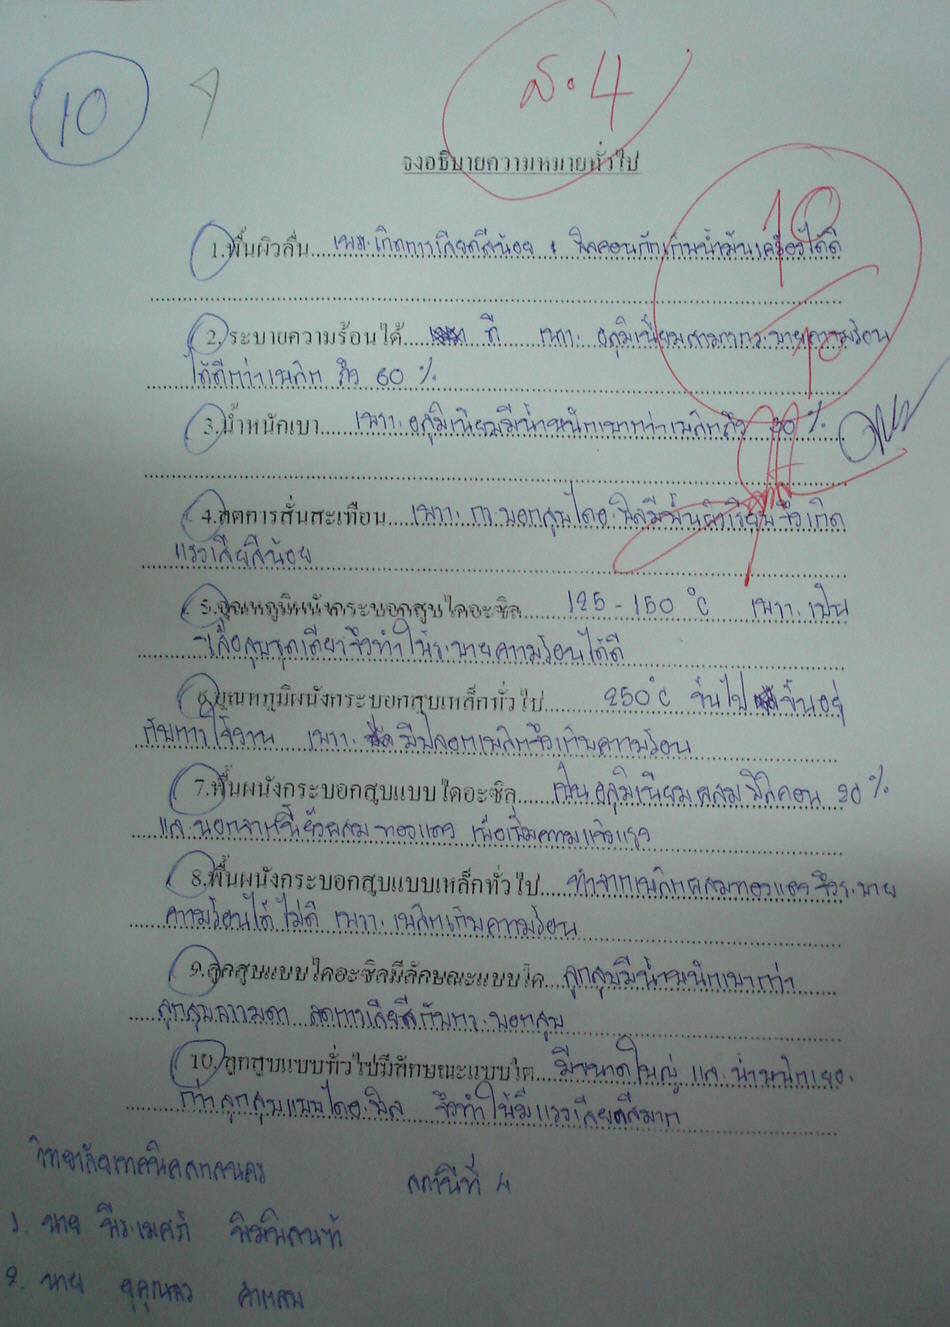 10
ส.4
จงอธิบายความหมายทั่วไป
10
10
1.พื้นผิวลื่น เพราะเกิดการเสียดสีน้อย + ซิลิคอนกักเก็บน้ำมันเครื่องได้ดี
2.ระบายความร้อนได้ ดี เพราะ อลูมิเนียมสามารถระบายความร้อน
ได้ดีกว่าเหล็ก ถึง 60 %
3.น้ำหนักเบา เพราะ อลูมิเนียมมีน้ำหนักเบากว่าเหล็กถึง %
4.ลดการสั่นสะเทือน เพราะ กระบอกสูบไดอะซิลมีพื้นผิวเรียบจึงเกิด
แรงเสียดสีน้อย
5.อุณหภูมิผนังกระบอกสูบไดอะซิล 125-150 °C เพราะ เป็น
เสื้อสูบชุดเดียวจึงทำให้ระบายความร้อนได้ดี
6.อุณหภูมิผนังกระบอกสูบเหล็กทั่วไป 250°C ขึ้นไป ขึ้นอยู่
กับการใช้งาน เพราะ มีปลอกเหล็กจึงเก็บความร้อน
7.พื้นผนังกระบอกสูบแบบไดอะซิล เป็นอลูมิเนียมผสมซิลิคอน 20 %
และนอกจากนี้ยังผสมทองแดง เพื่อเพิ่มความแข็งแรง
8.พื้นผนังกระบอกสูบแบบเหล็กทั่วไป ทำจากเหล็กผสมทองแดง จึงระบาย
ความร้อนได้ไม่ดี เพราะ เหล็กเก็บความร้อน
9.ลูกสูบแบบไดอะซิลมีลักษณะแบบใด ลูกสูบมีน้ำหนักเบากว่า
ลูกสูบธรรมดา ลดการเสียดสีกับกระบอกสูบ
10.ลูกสูบแบบทั่วไปมีลักษณะแบบใด มีขนาดใหญ่ และ น้ำหนักเยอะ
กว่าลูกสูบแบบไดอะซิล จึงทำให้มีแรงเสียดสีมาก
วิทยาลัยเทคนิคสกลนคร สถานีที่ 4
1. นาย
2. นาย